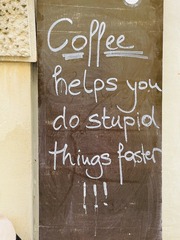 Coffee
helps you
do stupid
things faster
!!!